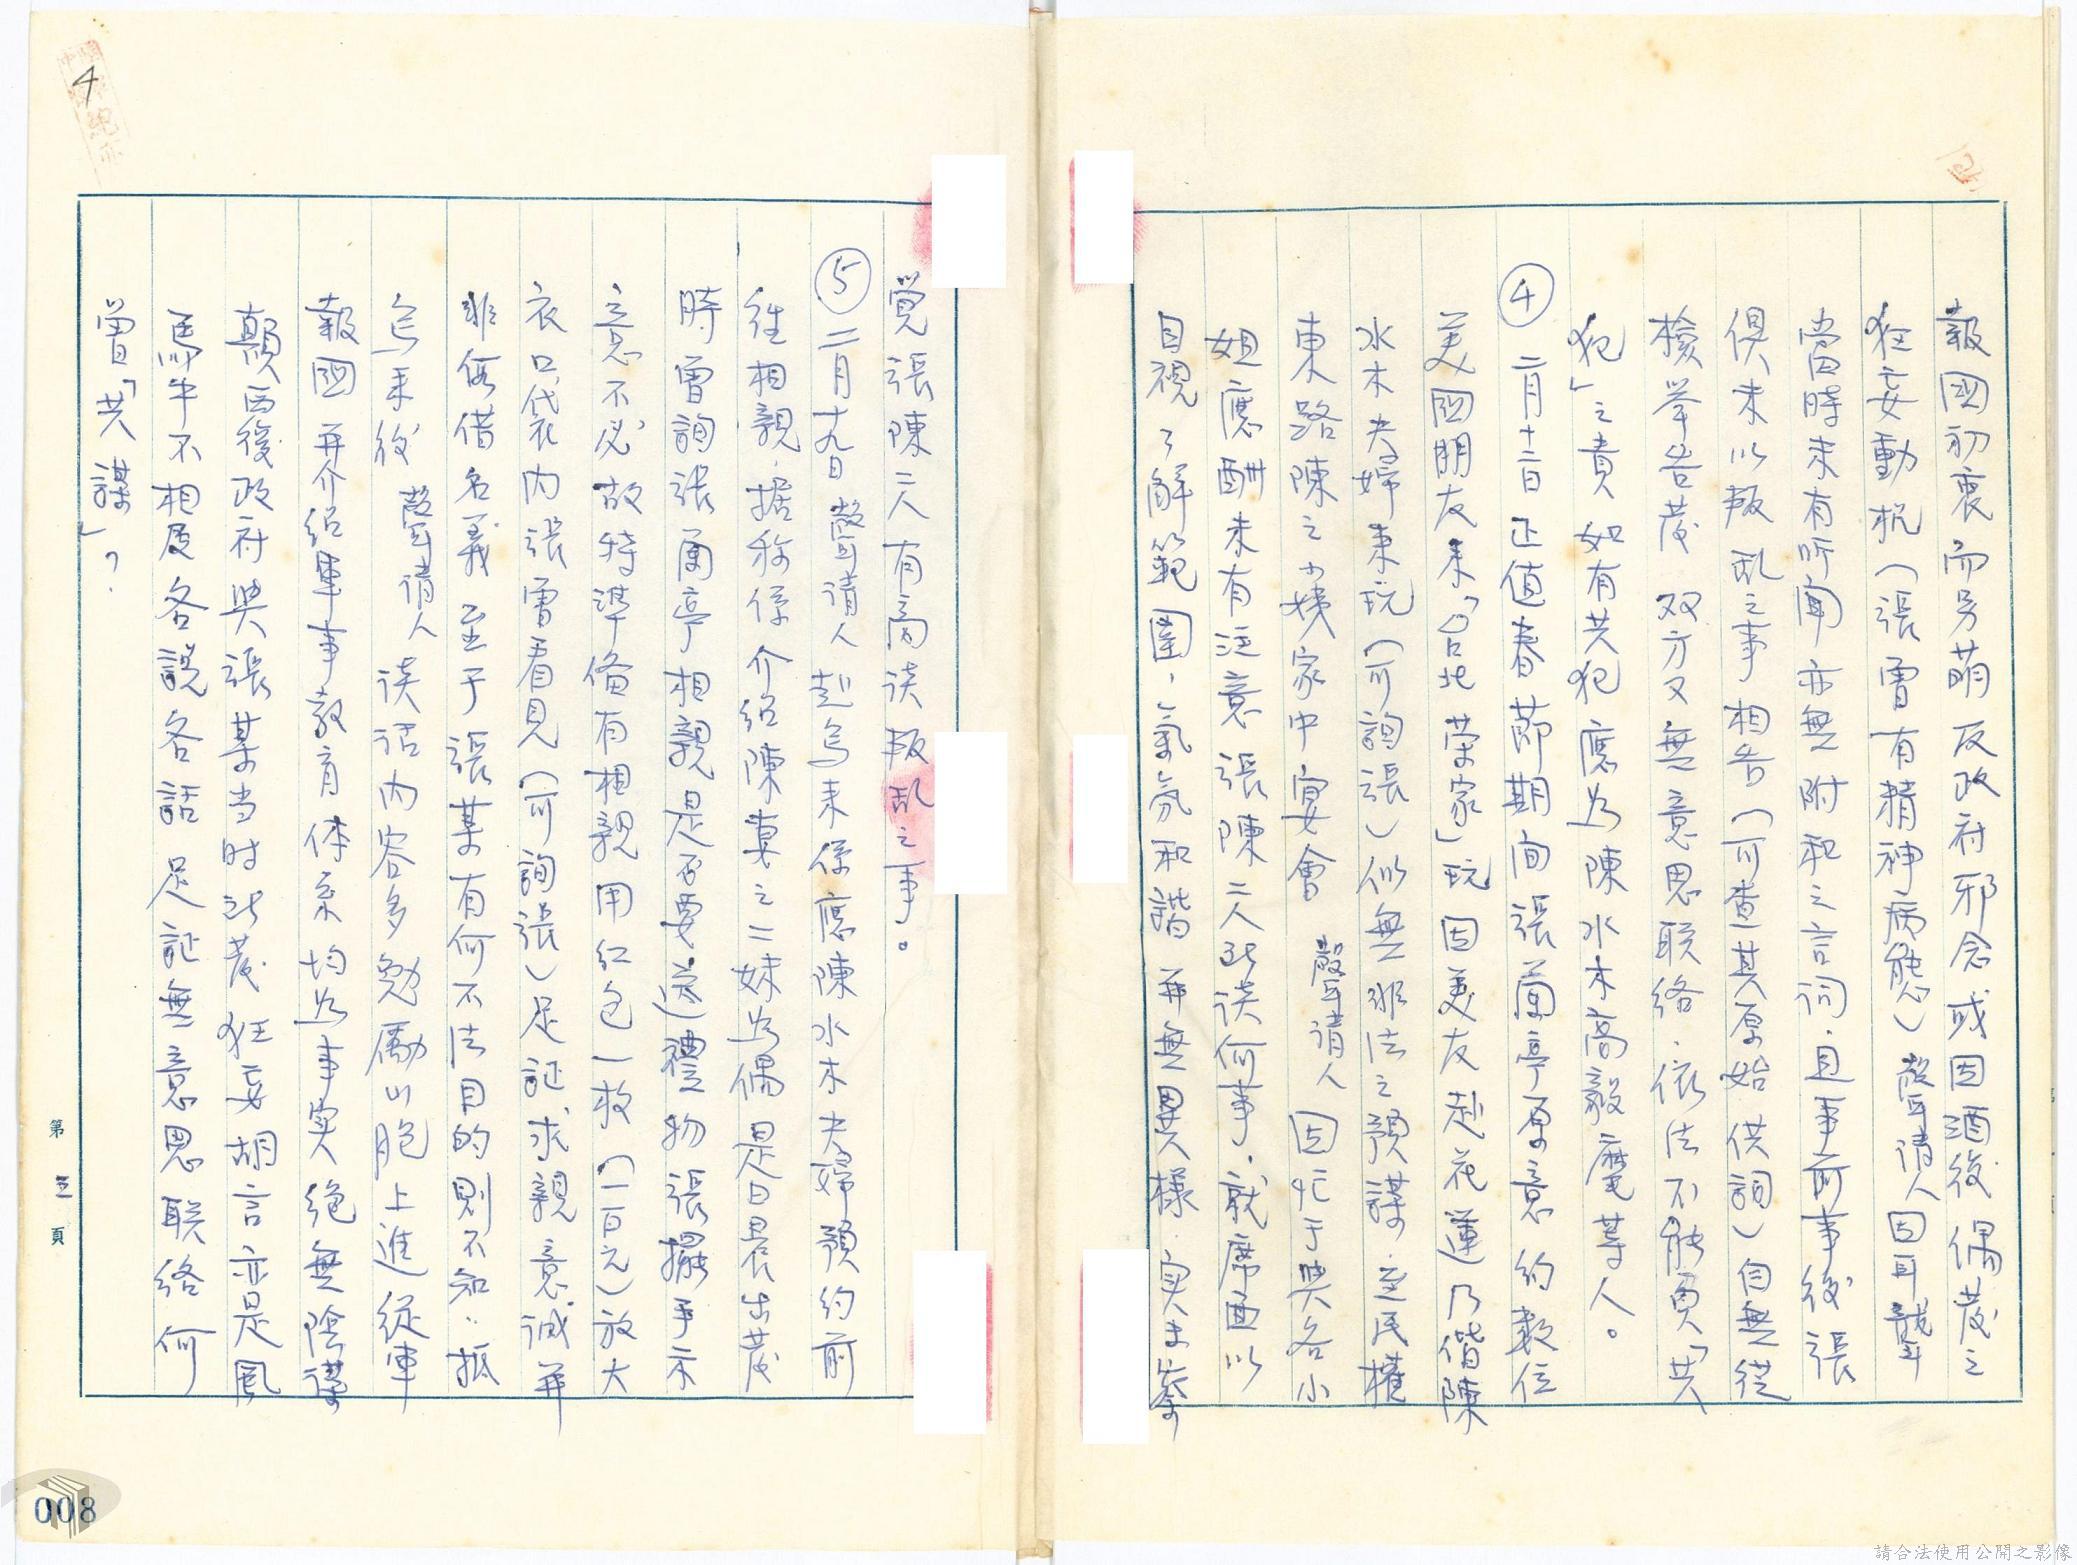 報國初衷而另萌反政府邪念或因酒後偶发之
狂妄動机(張曾有精神病態)聲请人因耳聾
當時未有所闻亦無附和之言词.且事前事後張
俱未以叛乱之事相告(可查其原始供詞)自無從
檢举告发双方又無意思联络.依法不能負「共
犯」之責如有共犯應為陳水木高毅麾等人。
④二月十二日正值春節期间張蘭亭原意约数位
美國朋友来「台北荣家」玩因美友赴花蓮乃偕陳
水木夫婦来玩(可詢張)似無非法之預謀.至民權
東路陳之小姨家中宴會聲请人因忙于與各小
姐應酬未有注意張陳二人所谈何事.就席面以
目視了解範圍,氣氛和諧并無異樣.实未察
覺張陳二人有商谈叛乱之事。
⑤二月十九日聲请人赴烏来係應陳水木夫婦預约前
往相親.据称係介绍陳妻之二妹為偶是日晨出发
時曾詢張蘭亭相親是否要送禮物張攞手示
意不必故特準備有相親用红包一枚(一百元)放大
衣口袋内張曾看見(可詢張)足証求親意诚并
非假借名義至于張某有何不法目的則不知.抵
烏来後聲请人谈话内容多勉勵山胞上進從軍
報國并介绍軍事教育体系均為事实絕無陰謀
顛西復政府與張某当时所发狂妄胡言亦是風
馬牛不相及各說各話足証無意思联络何
曾「共謀」?.
第三頁
4
008
請合法使用公開之影像